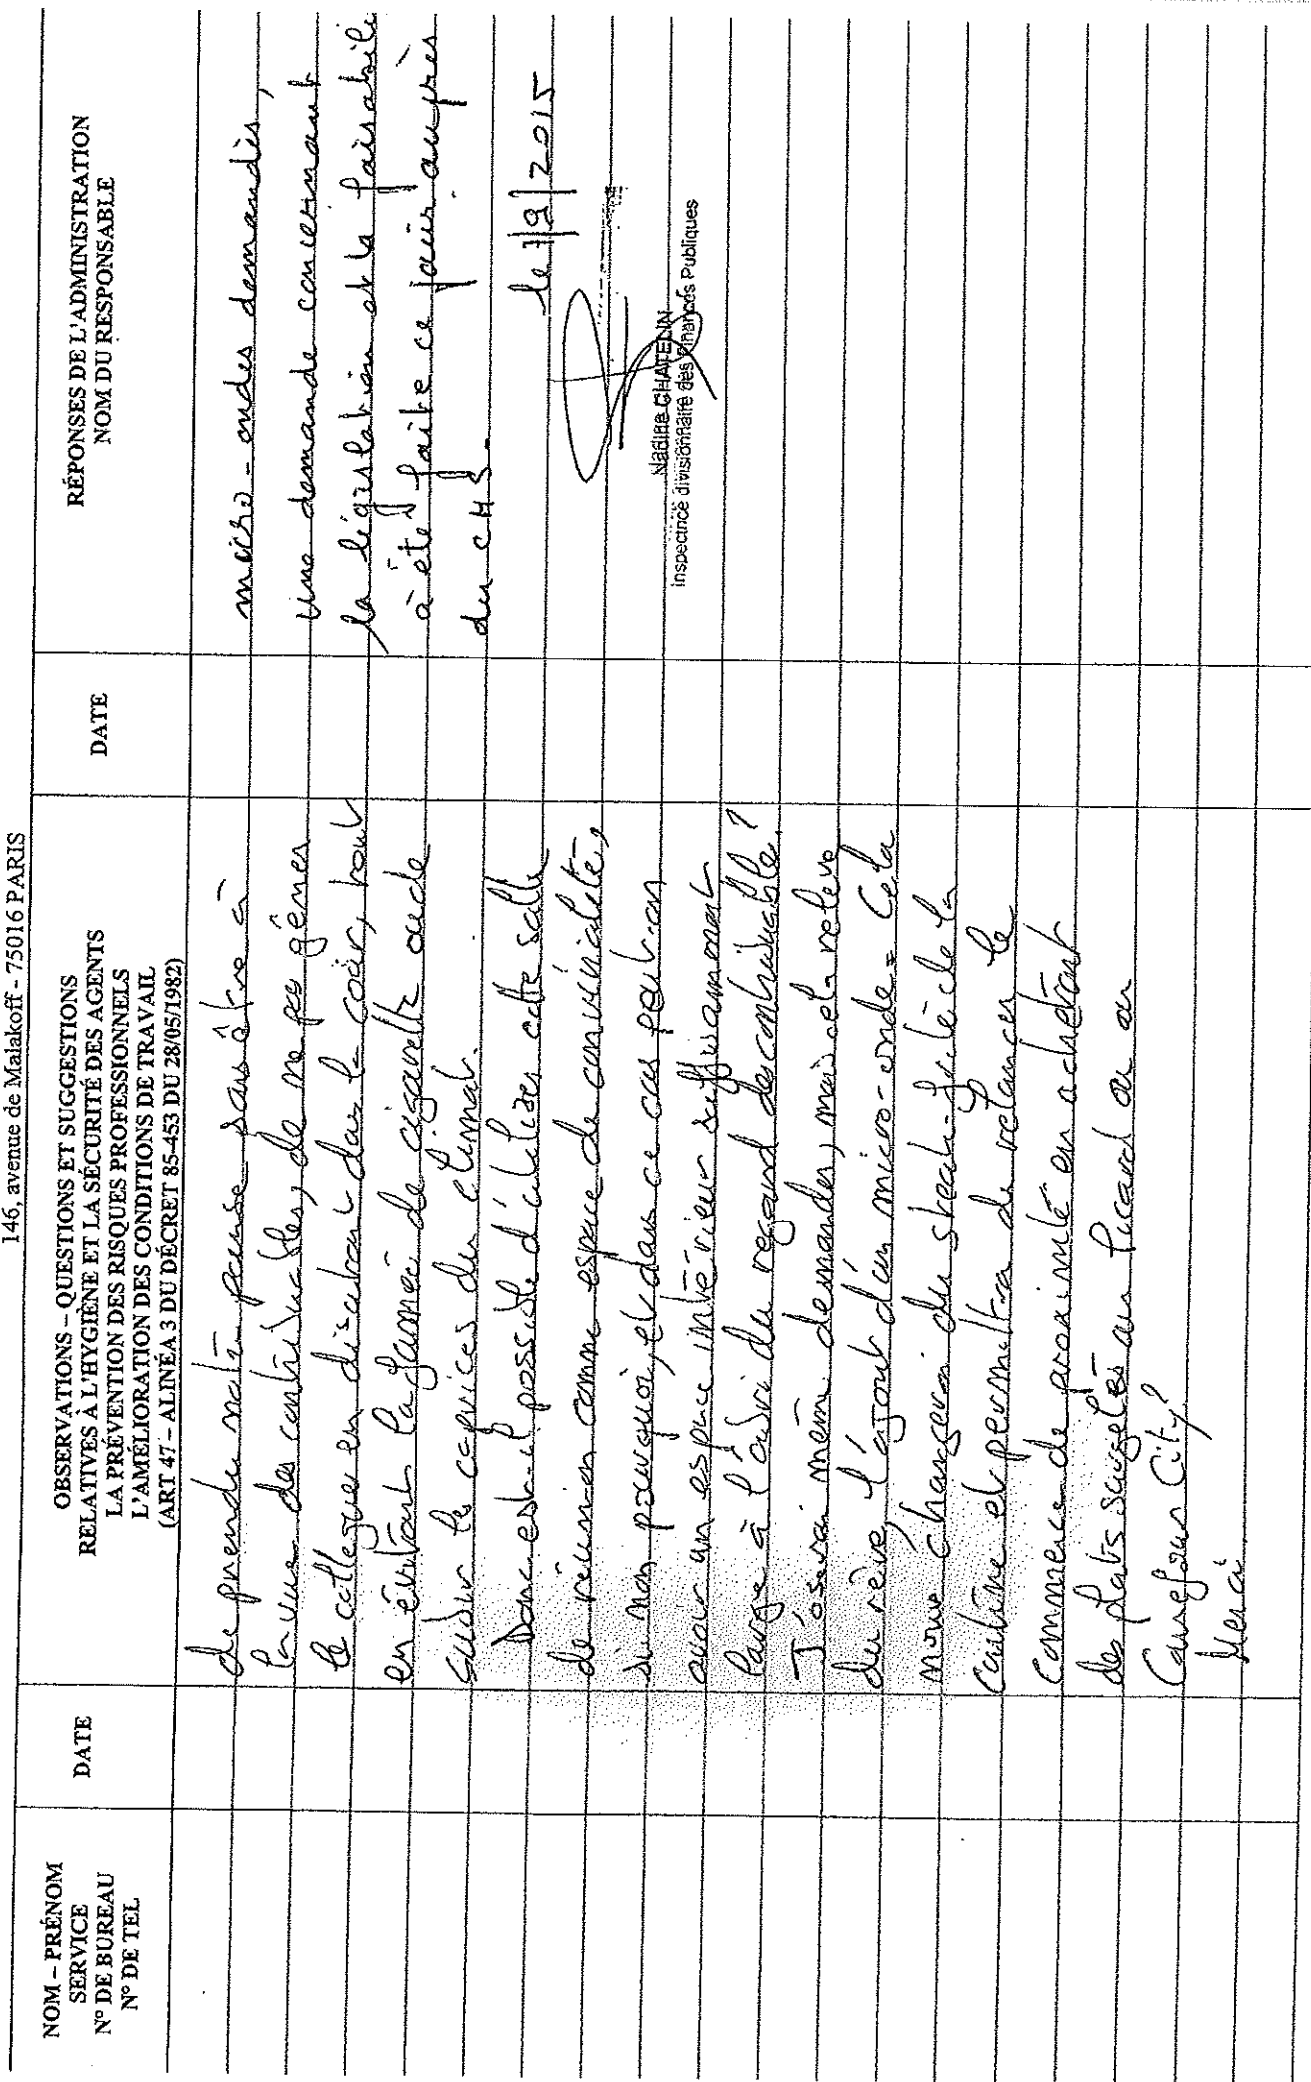 146, avenue de Malakoff - 75016 PARIS
NOM – PRÉNOM
SERVICE
N° DE BUREAU
N° DE TEL
DATE
OBSERVATIONS – QUESTIONS ET SUGGESTIONS
RELATIVES À L'HYGIÈNE ET LA SÉCURITÉ DES AGENTS
LA PRÉVENTION DES RISQUES PROFESSIONNELS
L'AMÉLIORATION DES CONDITIONS DE TRAVAIL
(ART 47 – ALINÉA 3 DU DÉCRET 85-453 DU 28/05/1982)
DATE
RÉPONSES DE L'ADMINISTRATION
NOM DU RESPONSABLE
de prendre notre pause sans être à
la vue des contribuables, de ne pas gêner
le collegue en discutant dans le couloir, tout
en évitant la fumée de cigarette ou de
subir les caprices du climat.
Donc est-il possible d'utiliser cette salle
de réunion comme espace de convivialité,
si non pourquoi, et dans ce cas peut-on
avoir un espace intérieur suffisamment
large à l'abri du regard des contribuables ?
J'oserai même demander, mais cela relève
du rêve, l'ajout d'un micro-onde = Cela
nous changerai du steak-frite de la
cantine et permettra de relancer le
commerce de proximité en achetant
des plats surgelés au Picard ou au
Carrefour City ?
Merci
micro-ondes demandés,
une demande concernant
la législation et la faisabilité
à été faite ce jour auprès
du CHS.
le 7/9/2015
Nadine CHATELIN
Inspectrice divisionnaire des Finances Publiques